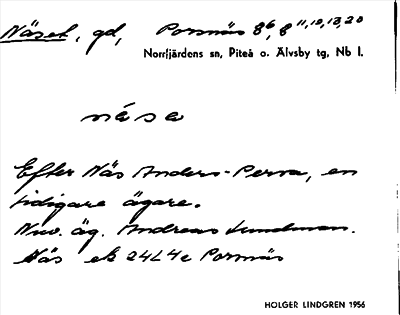 Näset, gd, Porsnäs 8⁶, 8¹¹,¹²,¹³,²⁰
Norrfjärdens sn, Piteå o. Älvsby tg, Nb l.
nása
Efter Näs Anders-Persa, en
tidigare ägare.
Nuv. äg. Andreas Lundman.
Näs ek 24L4e Porsnäs
HOLGER LINDGREN 1956